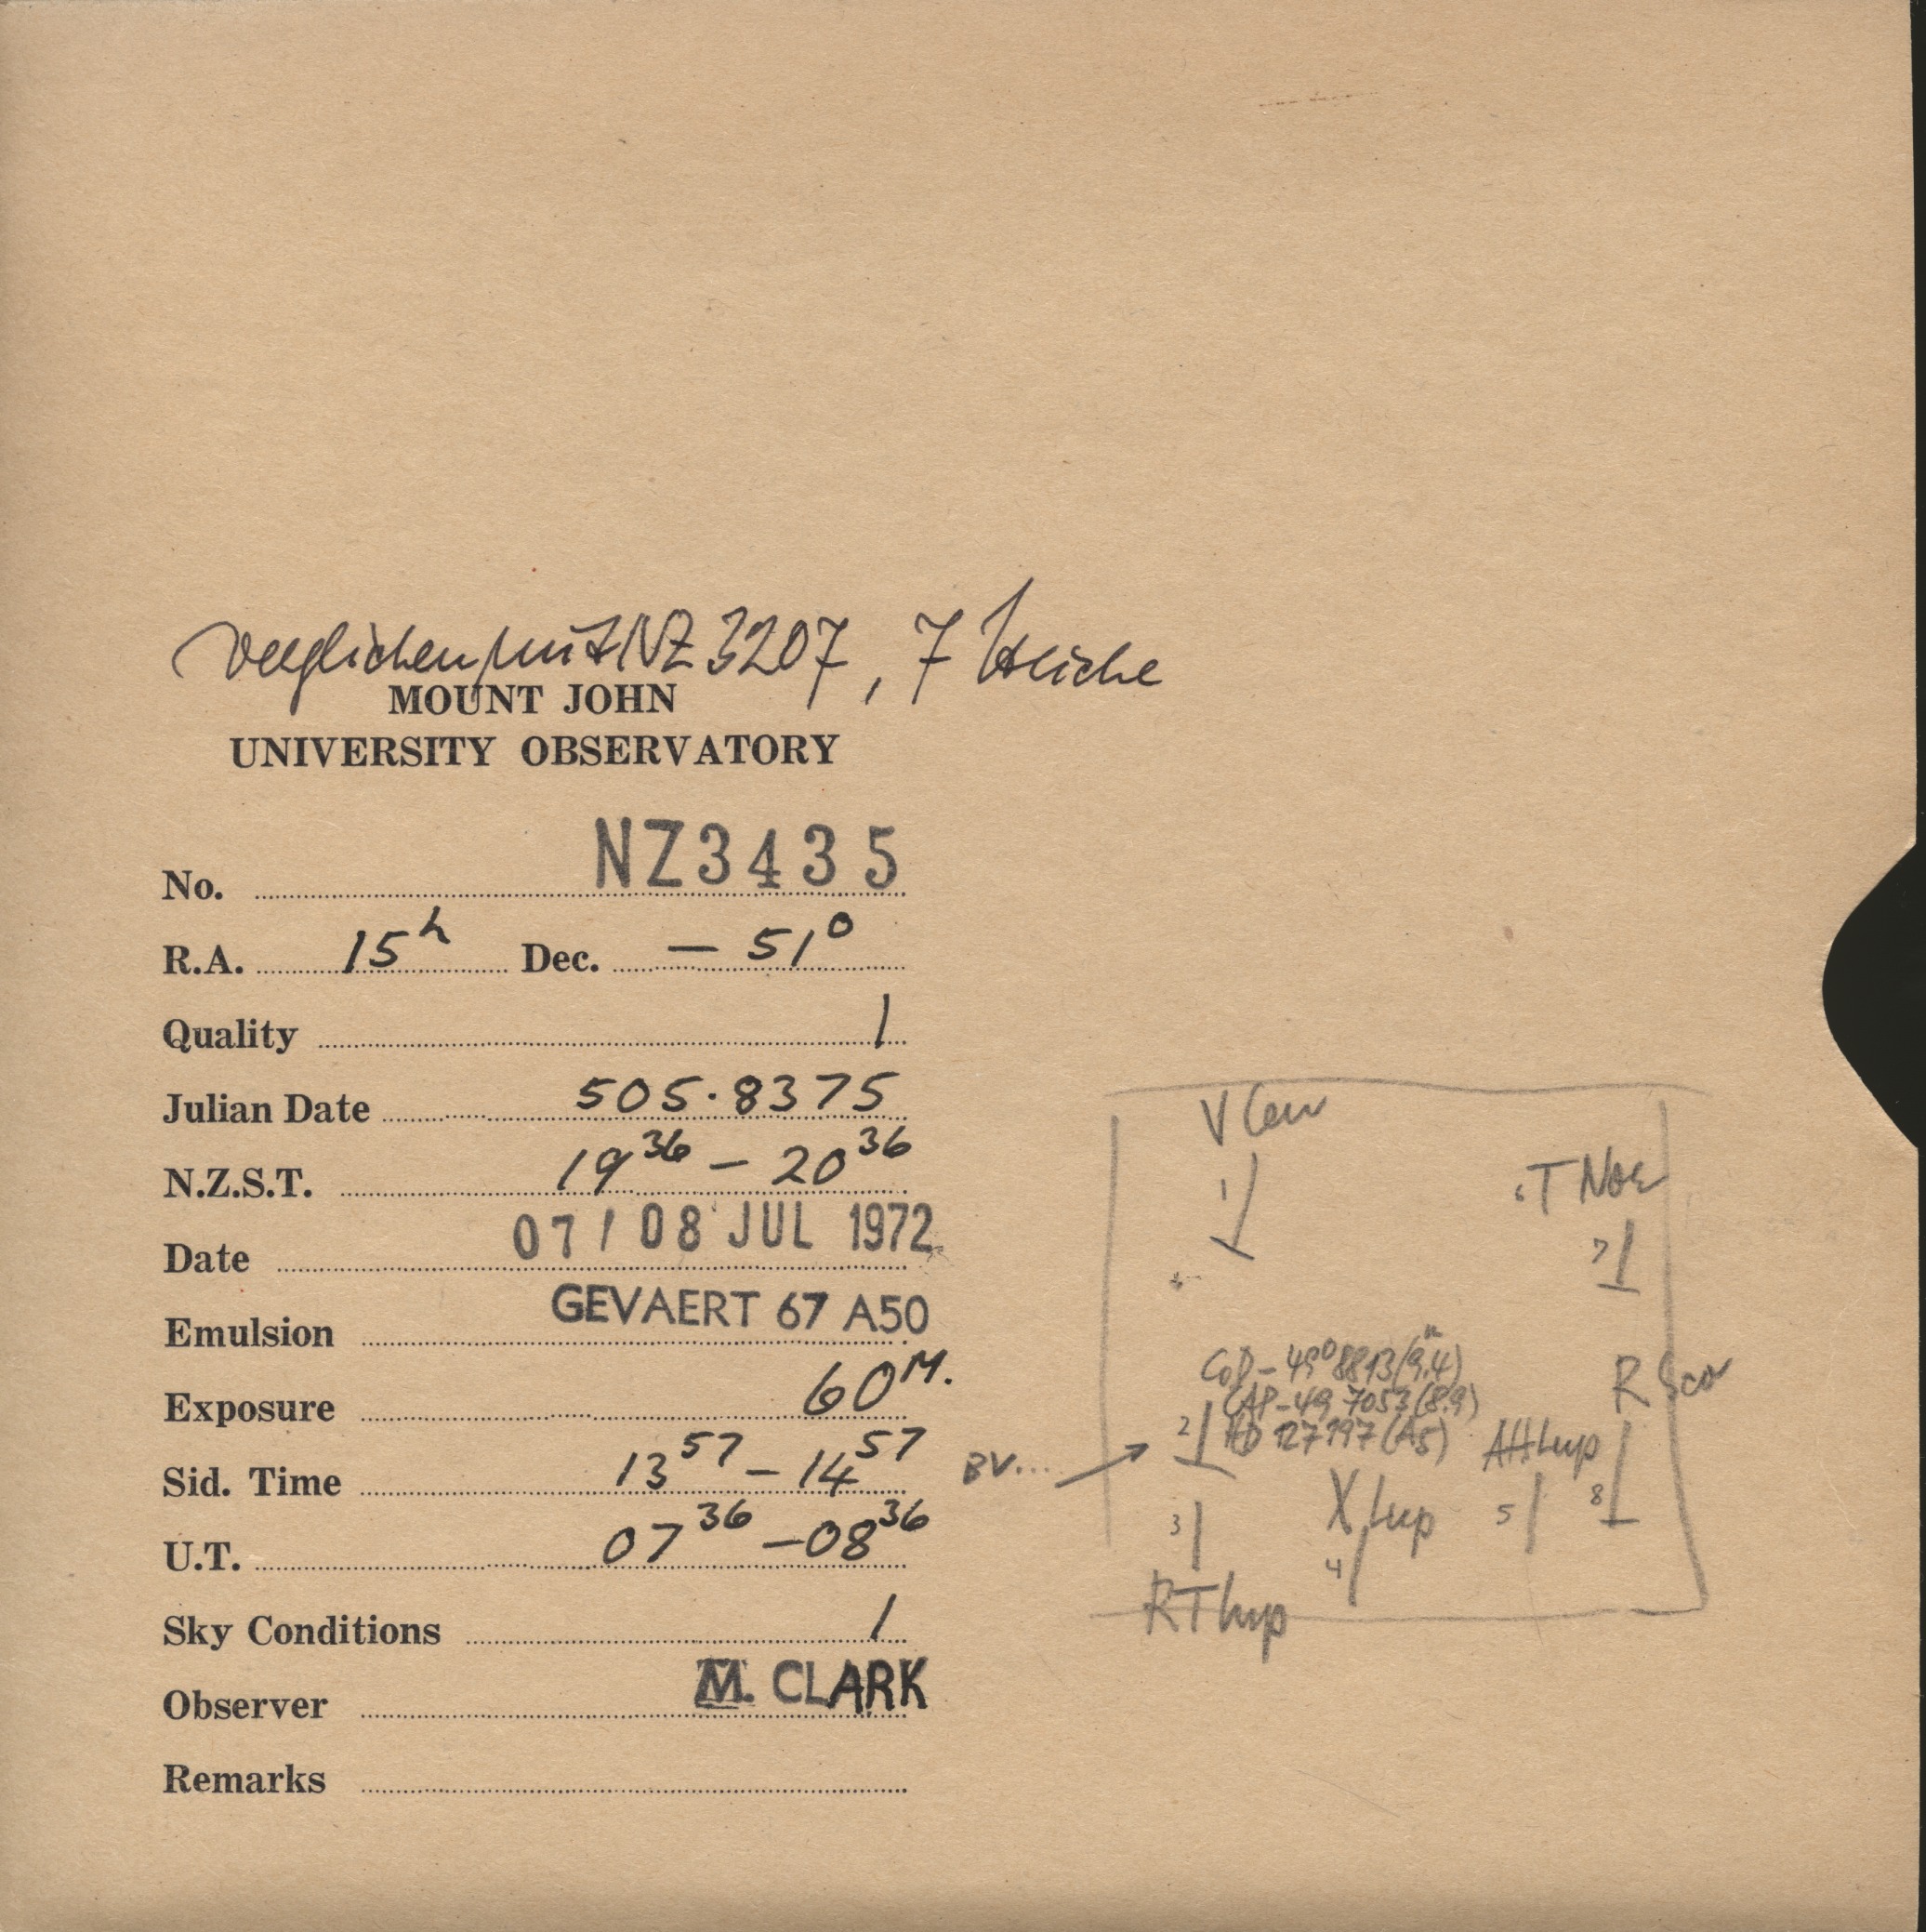 verglichen mit NZ 3207, 7 Striche
MOUNT JOHN
UNIVERSITY OBSERVATORY
No. NZ3435
R.A. 15h Dec. – 51°
Quality 1
Julian Date 505.8375
N.Z.S.T. 19 36 – 20 36
Date 07/08 JUL 1972
Emulsion GEVAERT 67 A50
Exposure 60 M.
Sid. Time 13 57 – 14 57
U.T. 07 36 – 08 36
Sky Conditions 1
Observer M. CLARK
Remarks
V Cen
1
T Nor
7
CoD –49° 8813 (9.4)
CAP –49 7053 (8.9)
HD 127197 (A5)
2
BV...
R Sco
AH Lup
8
3
X Lup
5
4
RT Lup